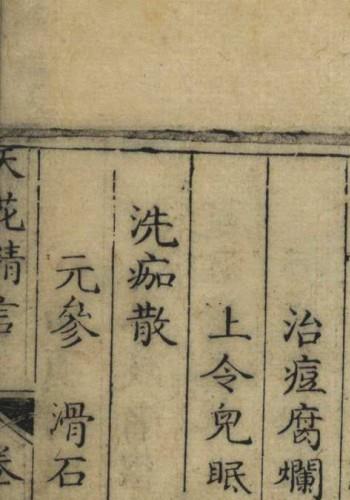 治痘腐爛
上令兒眠
洗痂散
元參 滑石
天花精言 卷